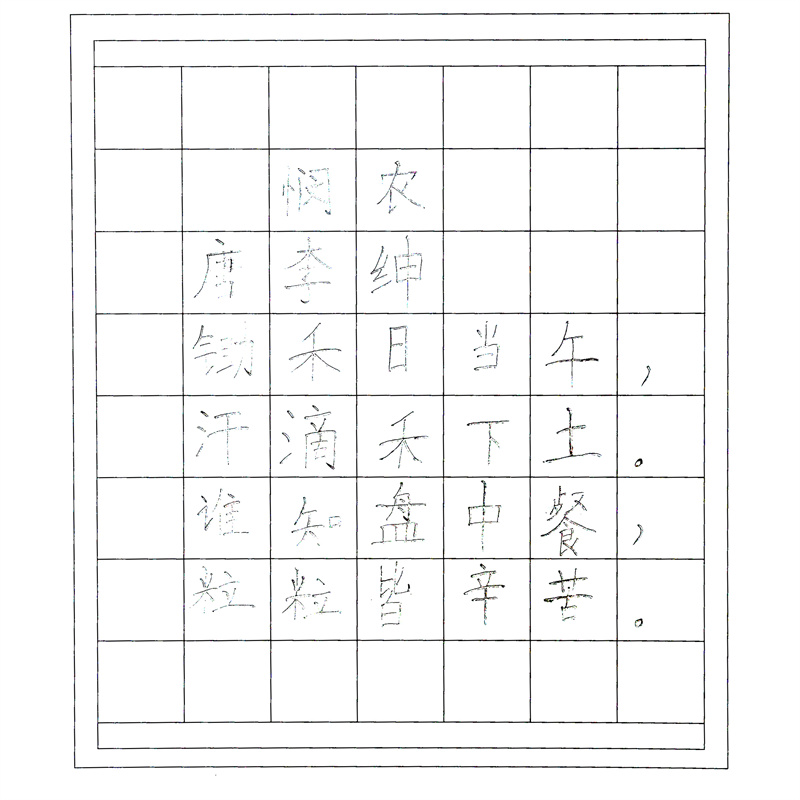 悯农
唐李绅
锄禾日当午，
汗滴禾下土。
谁知盘中餐，
粒粒皆辛苦。